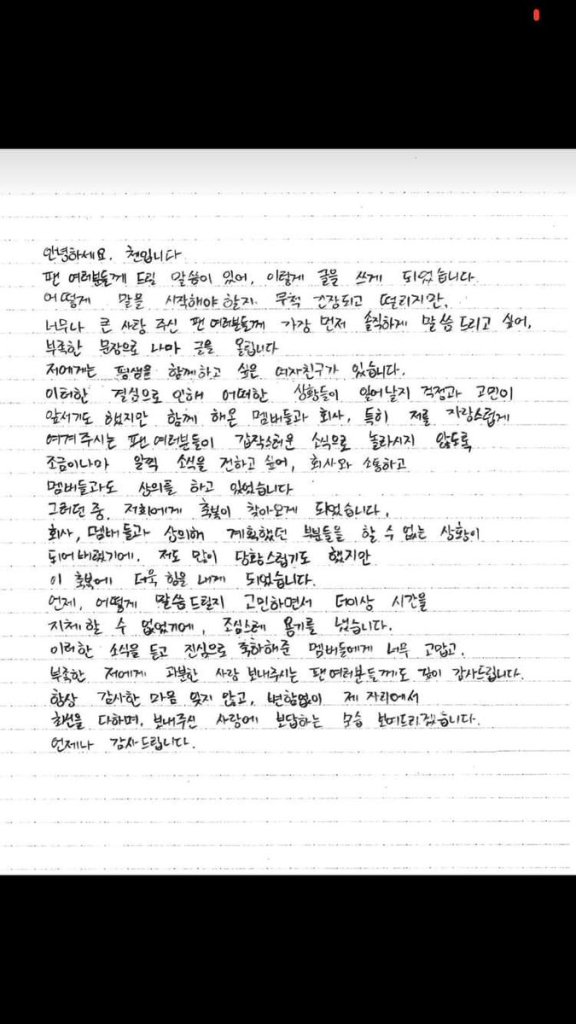 안녕하세요. 첸입니다
팬 여러분들께 드릴 말씀이 있어, 이렇게 글을 쓰게 되었습니다.
어떻게 말을 시작해야 할지 무척 긴장되고 떨리지만,
너무나 큰 사랑 주신 팬 여러분들께 가장 먼저 솔직하게 말씀드리고 싶어,
부족한 문장으로 나마 글을 올립니다
저에게는 평생을 함께하고 싶은 여자친구가 있습니다.
이러한 결심으로 인해 어떠한 상황들이 일어날지 걱정과 고민이
앞서기도 했지만 함께 해온 멤버들과 회사, 특히 저를 자랑스럽게
여겨주시는 팬 여러분들이 갑작스러운 소식으로 놀라시지 않도록
조금이나마 일찍 소식을 전하고 싶어, 회사와 소통하고
멤버들과도 상의를 하고 있었습니다
그러던 중, 저희에게 축복이 찾아오게 되었습니다.
회사, 멤버들과 상의해 계획했던 부분들을 할 수 없는 상황이
되어버렸기에, 저도 많이 당황스럽기도 했지만
이 축복에 더욱 힘을 내게 되었습니다.
언제, 어떻게 말씀드릴지 고민하면서 더이상 시간을
지체할 수 없었기에, 조심스레 용기를 냈습니다.
이러한 소식을 듣고 진심으로 축하해준 멤버들에게 너무 고맙고,
부족한 저에게 과분한 사랑 보내주시는 팬 여러분들께도 깊이 감사드립니다.
항상 감사한 마음 잊지 않고, 변함없이 제 자리에서
최선을 다하며, 보내주신 사랑에 보답하는 모습 보여드리겠습니다.
언제나 감사드립니다.